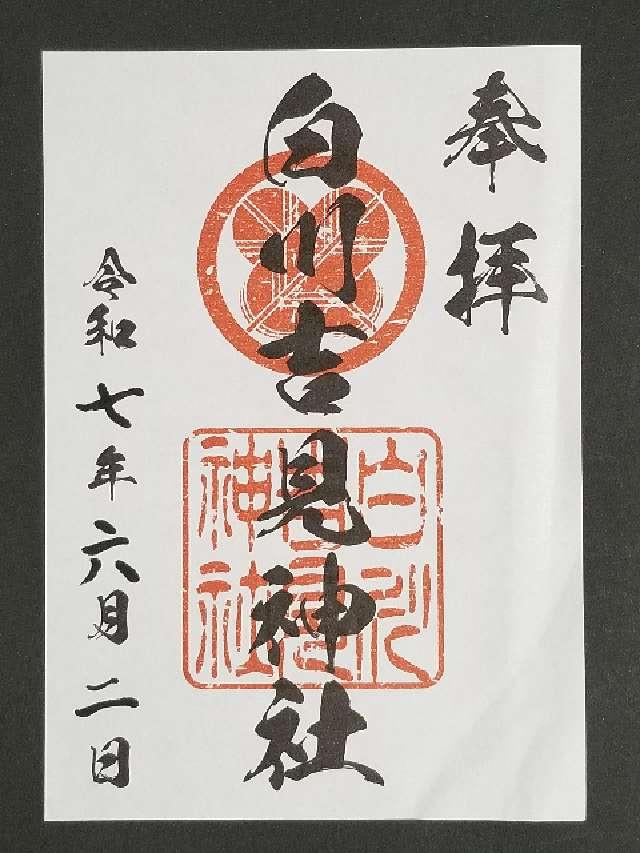 奉拝
白川吉見神社
白川吉見神社
令和七年六月二日